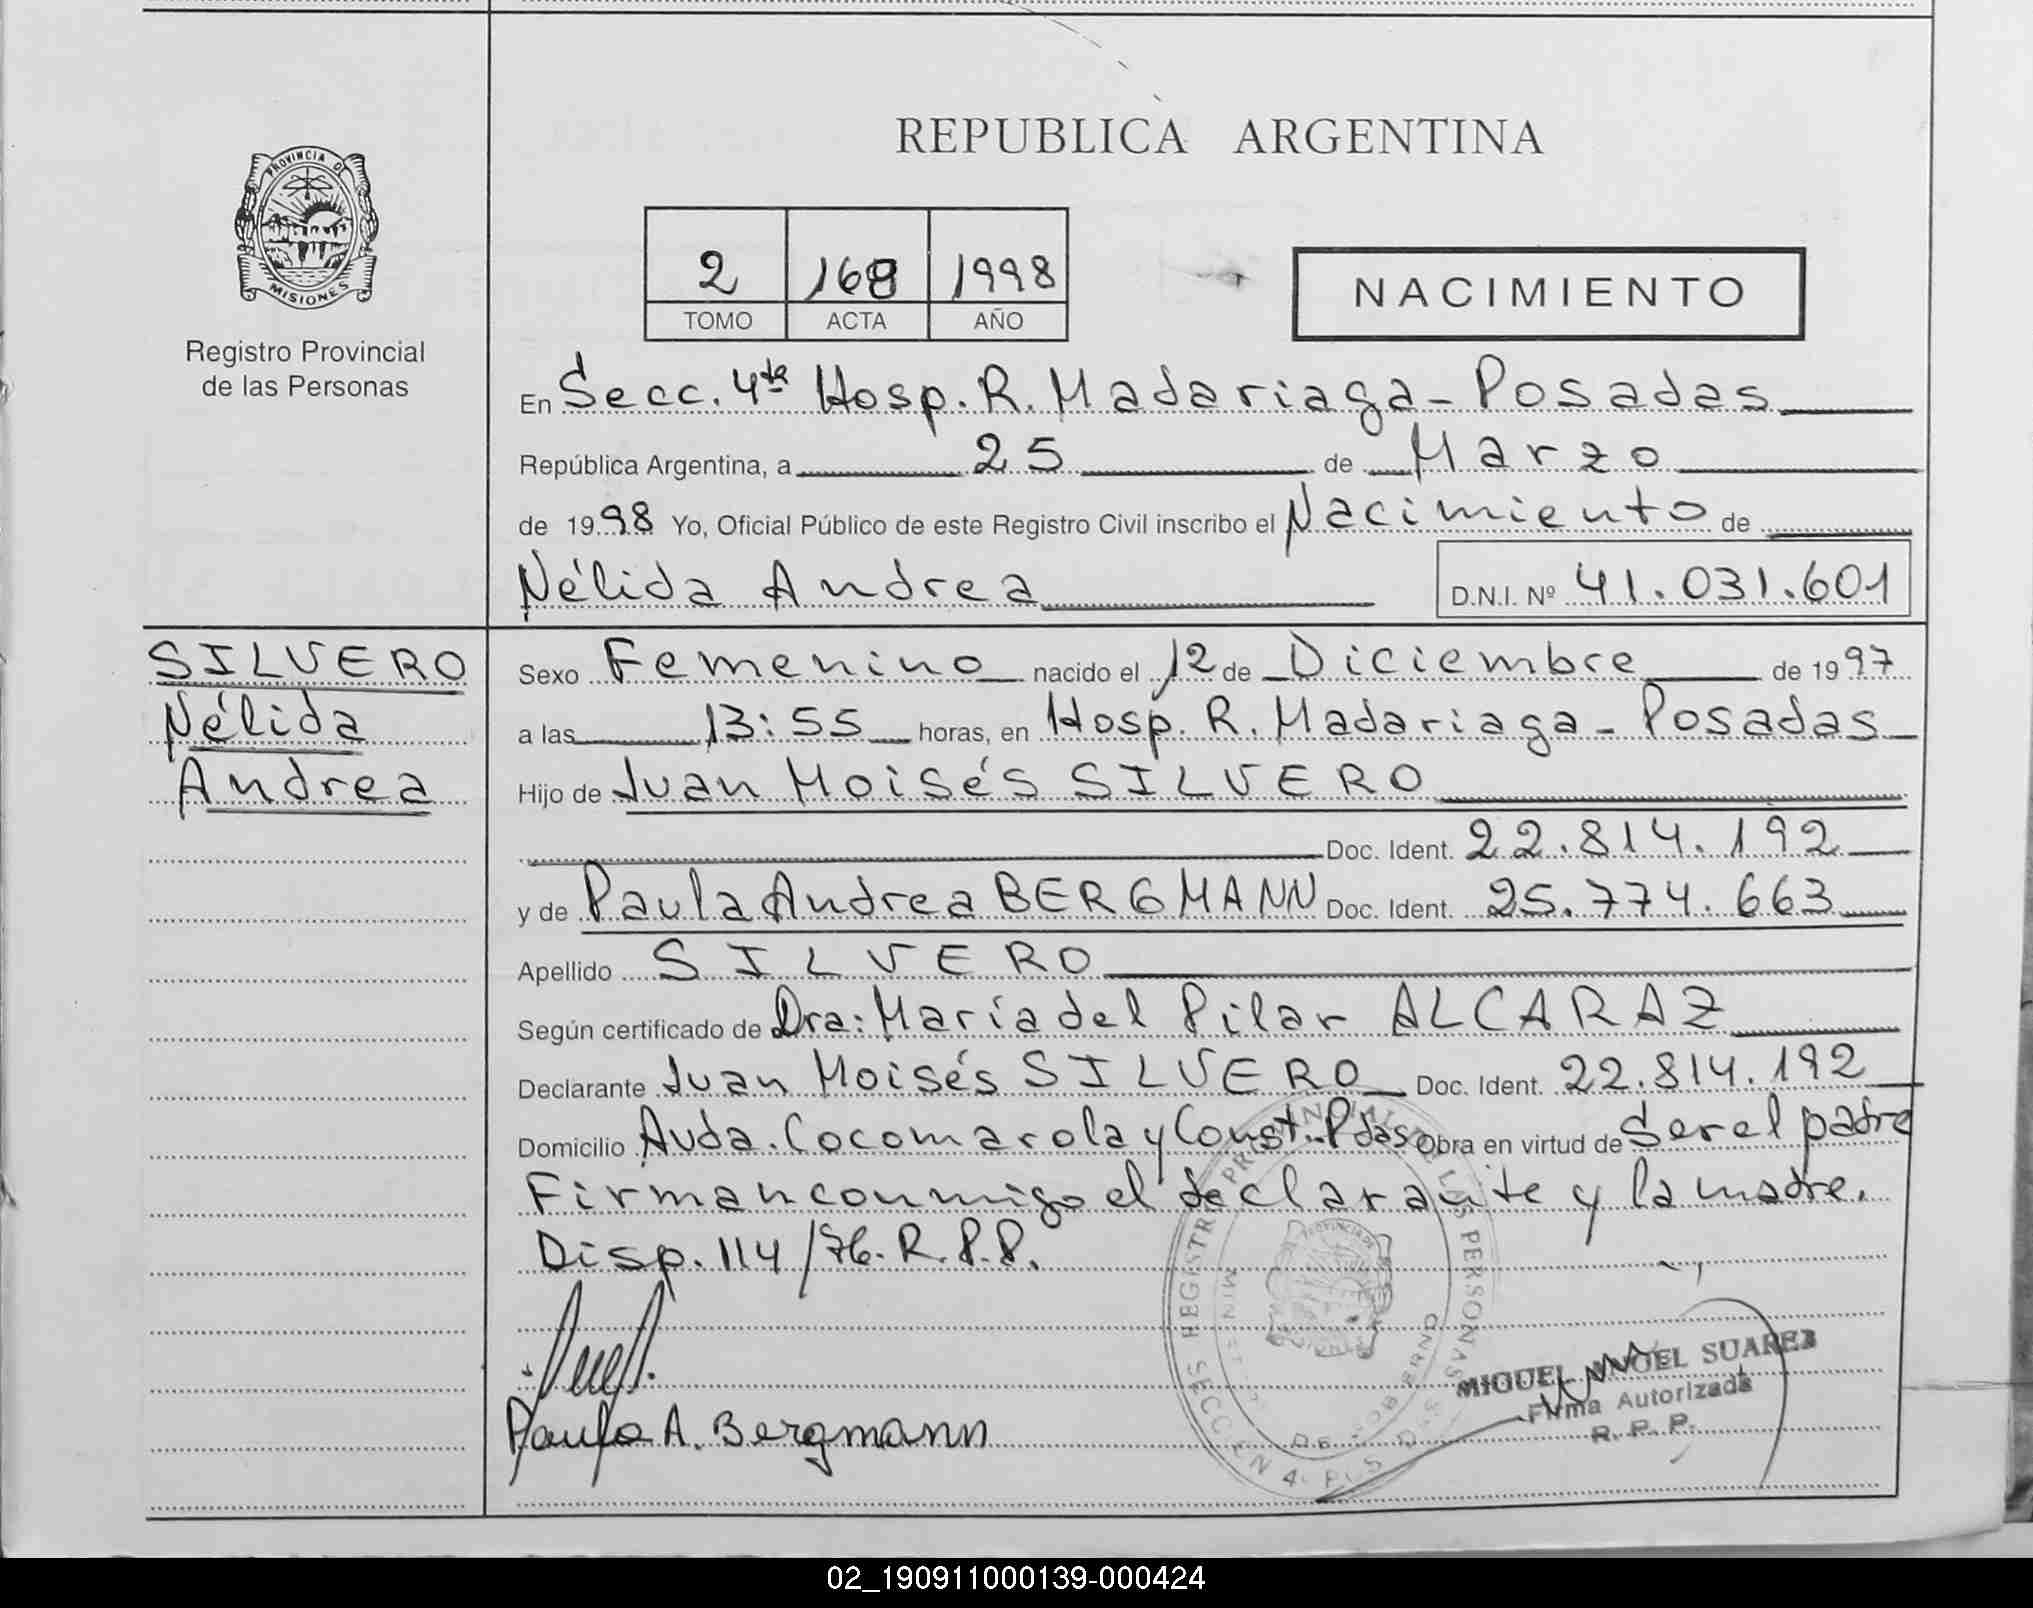 PROVINCIA DE
MISIONES
Registro Provincial
de las Personas
REPUBLICA ARGENTINA
2 168 1998
TOMO ACTA AÑO
NACIMIENTO
En Secc. 4ta Hosp. R. Madariaga - Posadas
República Argentina, a 25 de Marzo
de 1998 Yo, Oficial Público de este Registro Civil inscribo el Nacimiento de
Nélida Andrea D.N.I. Nº 41.031.601
SILVERO
Nélida
Andrea
Sexo Femenino nacido el 12 de Diciembre de 1997
a las 13:55 horas, en Hosp. R. Madariaga - Posadas
Hijo de Juan Moisés SILVERO
Doc. Ident. 22.814.192
y de Paula Andrea BERGMANN Doc. Ident. 25.774.663
Apellido SILVERO
Según certificado de Dra: María del Pilar ALCARAZ
Declarante Juan Moisés SILVERO Doc. Ident. 22.814.192
Domicilio Avda. Cocomarola y Const. Pdas Obra en virtud de Ser el padre
Firman conmigo el declarante y la madre.
Disp. 114/76. R.P.P.
Paula A. Bergmann
MIGUEL ANGEL SUAREZ
Firma Autorizada
R. P. P.
02_190911000139-000424